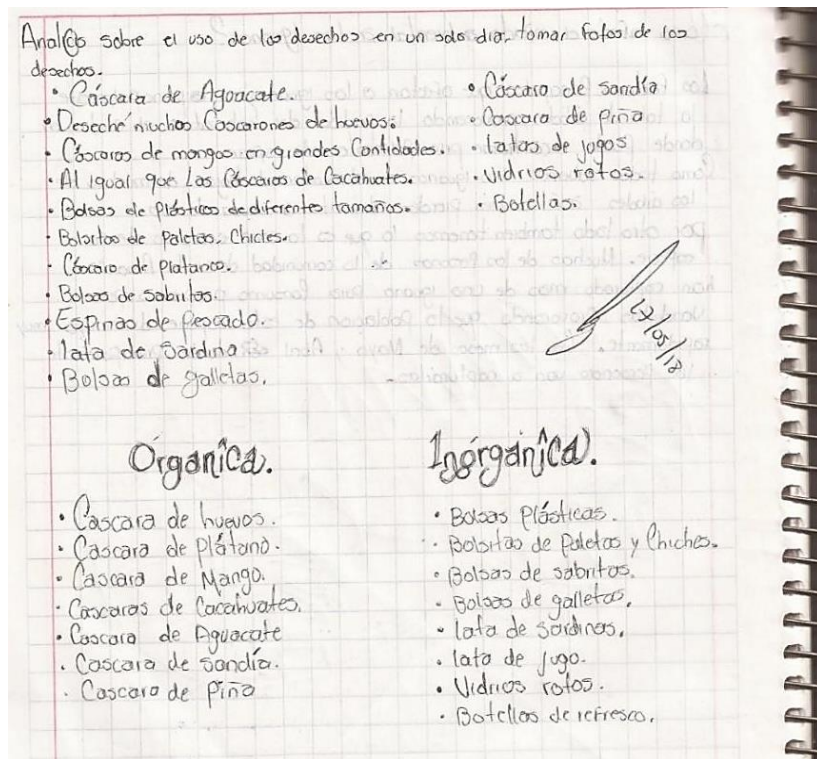 Analisis sobre el uso de los desechos en un solo dia, tomar fotos de los
desechos.
• Cáscara de Aguacate.
• Deseche muchos Cascarones de huevos.
• Cáscaras de mangos en grandes Cantidades.
• Al igual que Las Cáscaras de Cacahuates.
• Bolsas de Plástico de diferentes tamaños.
• Bolsitas de Paletas, Chicles.
• Cáscara de Platanco.
• Bolsas de sabritas.
• Espinas de Pescado.
• lata de Sardina
• Bolsas de galletas.
• Cáscara de sandía
• Cascara de Piña
• latas de jugos
• Vidrios rotos.
• Botellas.
/05/
Organica.
• Cascara de huevos.
• Cascara de Plátano.
• Cascara de Mango.
• Cascaras de Cacahuates.
• Cascara de Aguacate
• Cascara de Sandía.
• Cascara de Piña
Inorganica.
• Bolsas Plásticas.
• Bolsitas de Paletas y Chiches.
• Bolsas de sabritas.
• Bolsas de galletas.
• lata de sardinas.
• lata de jugo.
• Vidrios rotos.
• Botellas de refresco.